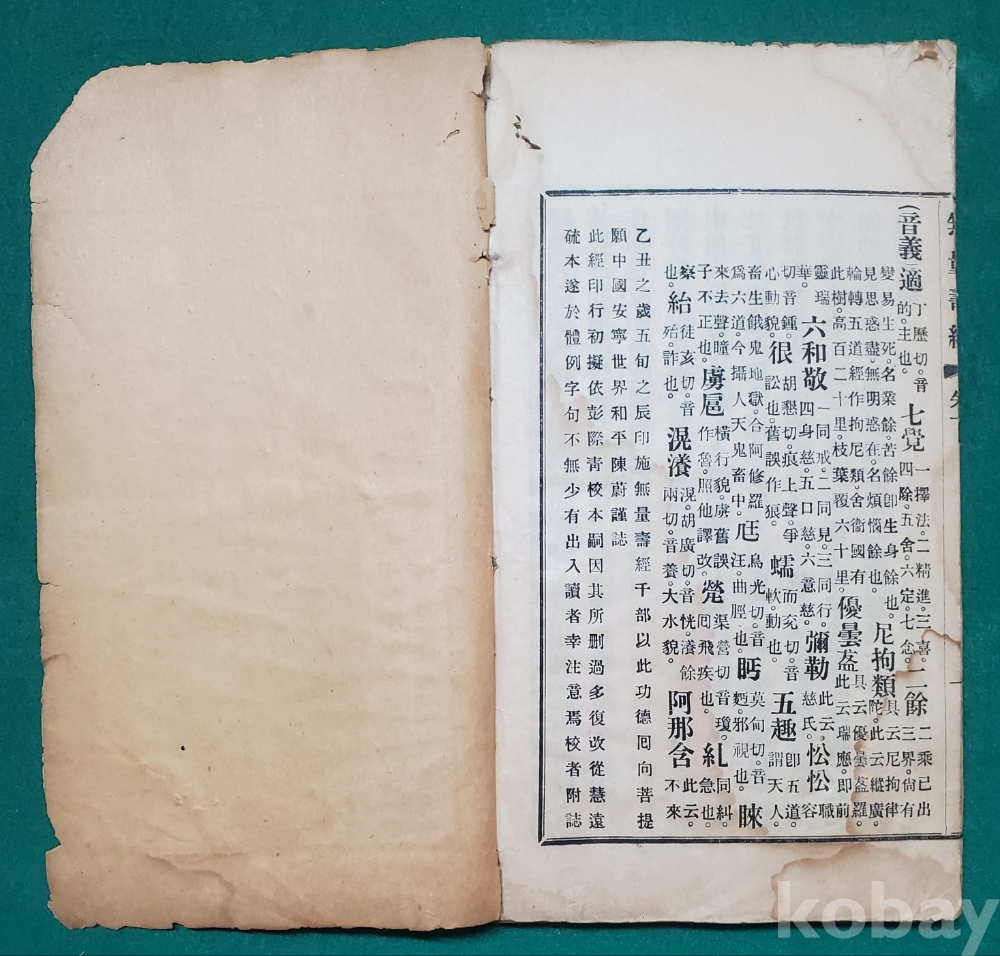 (音義)適丁歷切。音的。主也。七覺一擇法。二精進。三喜。四除。五舍。六定。七念。二餘二乘已出三界。尙有
變易生死。名業餘。苦餘卽生身餘也。見思惑盡。無明惑在。名煩惱餘也。尼拘類具云尼拘律陀。此云縱廣
輪轉五道經作拘尼類。舍衞國有此樹。高百二十里。枝葉覆六十里。優曇盋具云優曇盋羅。此云瑞應。即前
靈瑞華。六和敬一同戒。二同見。三同行。四身慈。五口慈。六意慈。彌勒此云慈氏。忪忪職容
切。音鍾。心動貌。很胡懇切。痕上聲。爭訟也。舊誤作狠。蠕而兗切。音軟。動也。五趣卽五道。謂天人。
畜生餓鬼地獄。合阿修羅爲六道。今攝人天鬼畜中。尪烏光切。音汪。曲脛也。眄莫甸切。音麪。邪視也。睞
來去聲。瞳子不正也。虜扈橫行貌。虜舊誤作魯。照他譯改。煢渠營切。音瓊。回飛疾也。糺同糾。急也。
察也。紿徒亥切。音殆。詐也。滉瀁滉。胡廣切。音恍。瀁。餘兩切。音養。大水貌。阿那含此云。不來
乙丑之歲五旬之辰印施無量壽經千部以此功德回向菩提
願中國安寧世界和平陳蔚謹誌
此經印行初擬依彭際青校本嗣因其所刪過多復改從慧遠
疏本遂於體例字句不無少有出入讀者幸注意焉校者附誌
kobay